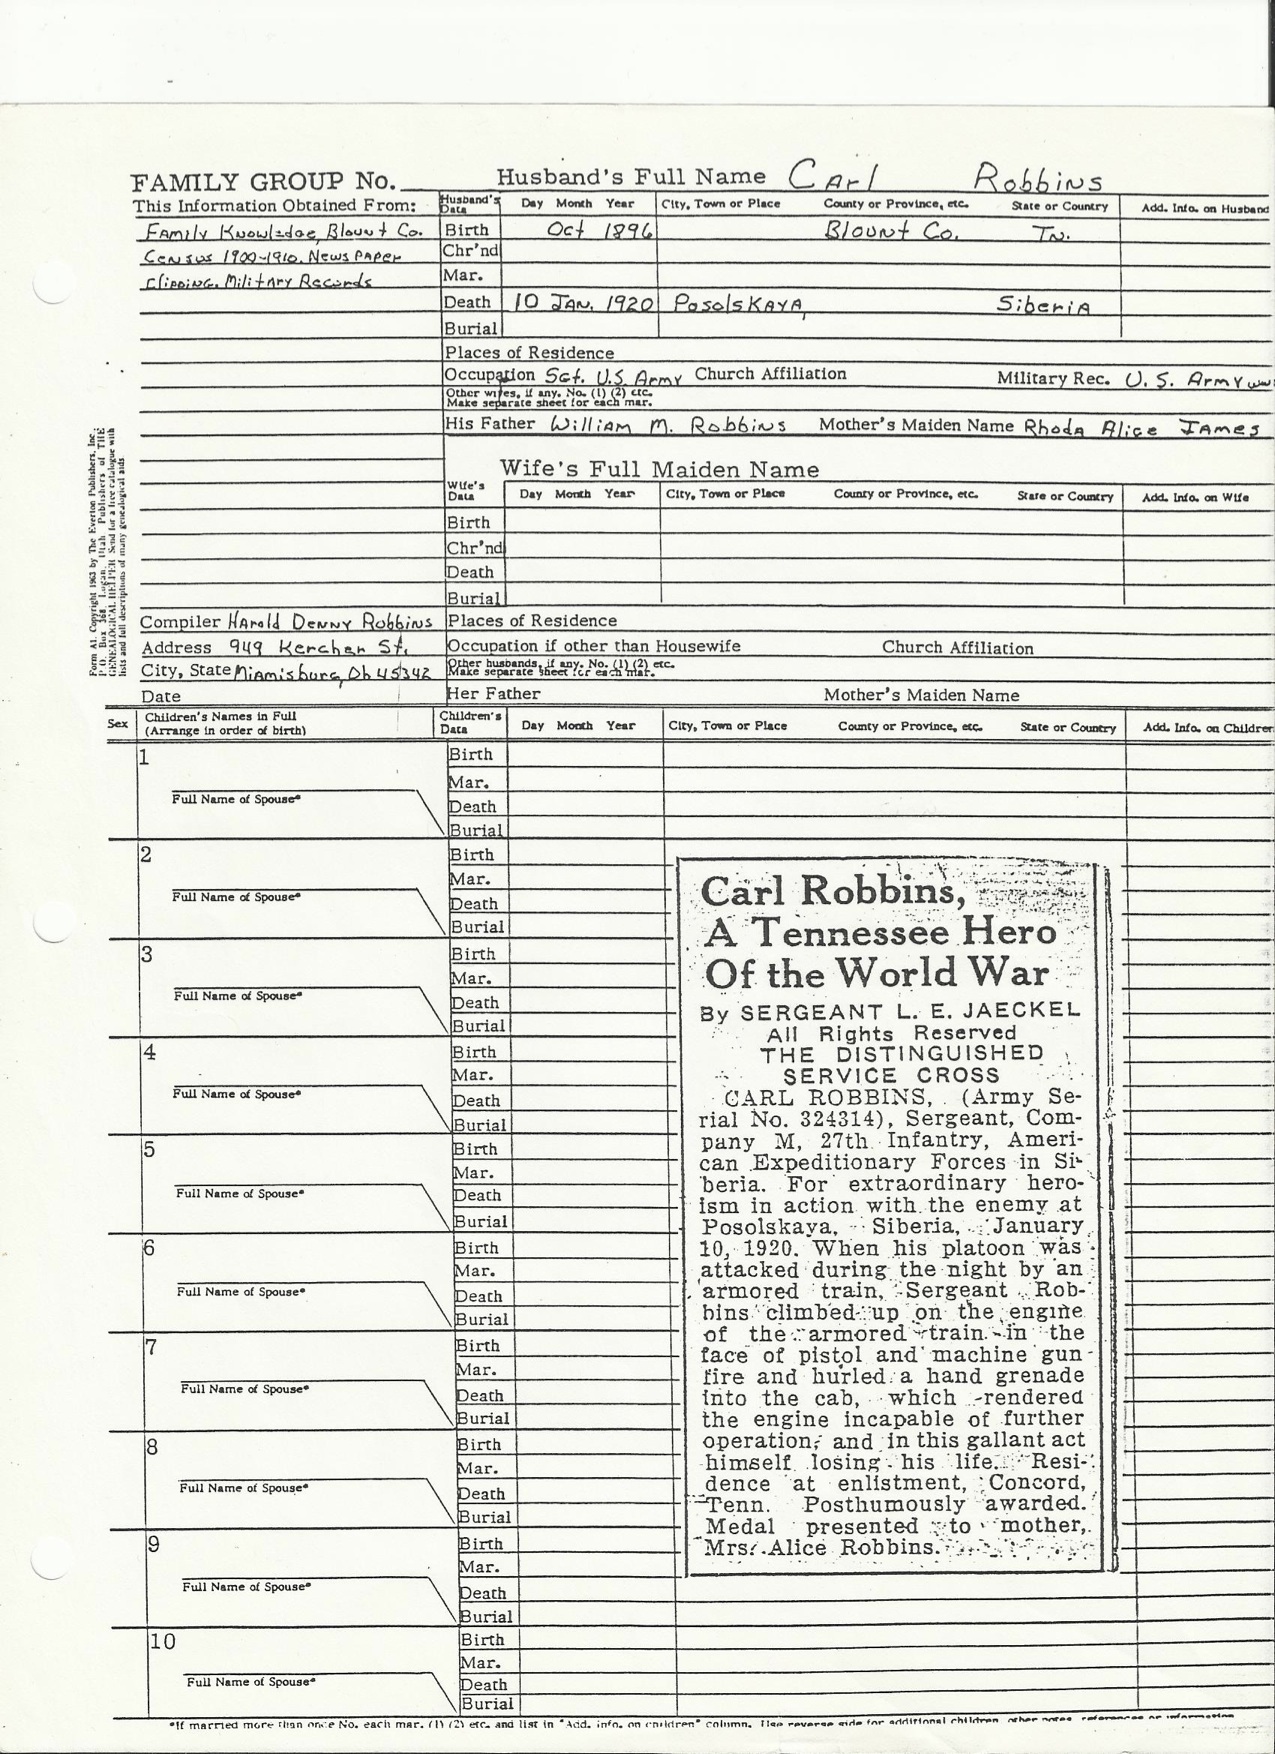 FAMILY GROUP No.
Husband's Full Name Carl Robbins
This Information Obtained From:
Husband's Data Day Month Year City, Town or Place County or Province, etc. State or Country Add. Info. on Husband
Family Knowledge, Blount Co.
Birth Oct 1896 Blount Co. Tn.
Census 1900-1910, News Paper
Chr'nd
Clipping, Military Records
Mar.
Death 10 Jan. 1920 Posolskaya, Siberia
Burial
Places of Residence
Occupation Sgt. U.S. Army Church Affiliation Military Rec. U. S. Army WW
Other wives, if any. No. (1) (2) etc.
Make separate sheet for each mar.
His Father William M. Robbins Mother's Maiden Name Rhoda Alice James
Wife's Full Maiden Name
Wife's Data Day Month Year City, Town or Place County or Province, etc. State or Country Add. Info. on Wife
Birth
Chr'nd
Death
Burial
Form A1. Copyright 1963 by The Everton Publishers, Inc.,
P.O. Box 368 Logan, Utah. Publishers of THE
GENEALOGICAL HELPER. Send for a free catalogue with
lists and full descriptions of many genealogical aids
Compiler Harold Denny Robbins
Places of Residence
Address 949 Kercher St.
Occupation if other than Housewife Church Affiliation
City, State Miamisburg, Oh 45342
Other husbands, if any. No. (1) (2) etc.
Make separate sheet for each mar.
Date
Her Father Mother's Maiden Name
Sex Children's Names in Full
(Arrange in order of birth)
Children's Data Day Month Year City, Town or Place County or Province, etc. State or Country Add. Info. on Children
1 Birth
Mar.
Full Name of Spouse*
Death
Burial
2 Birth
Mar.
Full Name of Spouse*
Death
Burial
3 Birth
Mar.
Full Name of Spouse*
Death
Burial
4 Birth
Mar.
Full Name of Spouse*
Death
Burial
5 Birth
Mar.
Full Name of Spouse*
Death
Burial
6 Birth
Mar.
Full Name of Spouse*
Death
Burial
7 Birth
Mar.
Full Name of Spouse*
Death
Burial
8 Birth
Mar.
Full Name of Spouse*
Death
Burial
9 Birth
Mar.
Full Name of Spouse*
Death
Burial
10 Birth
Mar.
Full Name of Spouse*
Death
Burial
Carl Robbins,
A Tennessee Hero
Of the World War
By SERGEANT L. E. JAECKEL
All Rights Reserved
THE DISTINGUISHED
SERVICE CROSS
CARL ROBBINS, (Army Se-
rial No. 324314), Sergeant, Com-
pany M, 27th Infantry, Ameri-
can Expeditionary Forces in Si-
beria. For extraordinary hero-
ism in action with the enemy at
Posolskaya, Siberia, January
10, 1920. When his platoon was
attacked during the night by an
armored train, Sergeant Rob-
bins climbed up on the engine
of the armored train in the
face of pistol and machine gun
fire and hurled a hand grenade
into the cab, which rendered
the engine incapable of further
operation, and in this gallant act
himself losing his life. Resi-
dence at enlistment, Concord,
Tenn. Posthumously awarded.
Medal presented to mother,
Mrs. Alice Robbins.
*If married more than once No. each mar. (1) (2) etc. and list in "Add. info. on children" column. Use reverse side for additional children, other notes, references or information